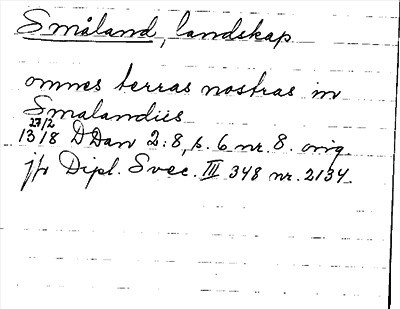 Småland, landskap
omnes terras nostras in
Smalandiis
27/2
1318 DDan 2:8, s. 6 nr. 8. orig
jfr Dipl. Svec. III 348 nr. 2134.